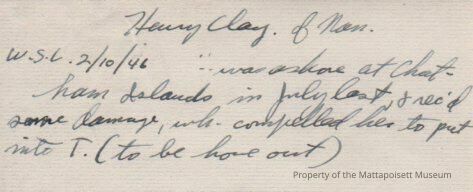 Henry Clay. of Nan.
W.S.L. 2/10/46 ∴ was ashore at Chat-
ham Islands in July last & rec'd
some damage, wh. compelled her to put
into T. (to be hove out)
Property of the Mattapoisett Museum